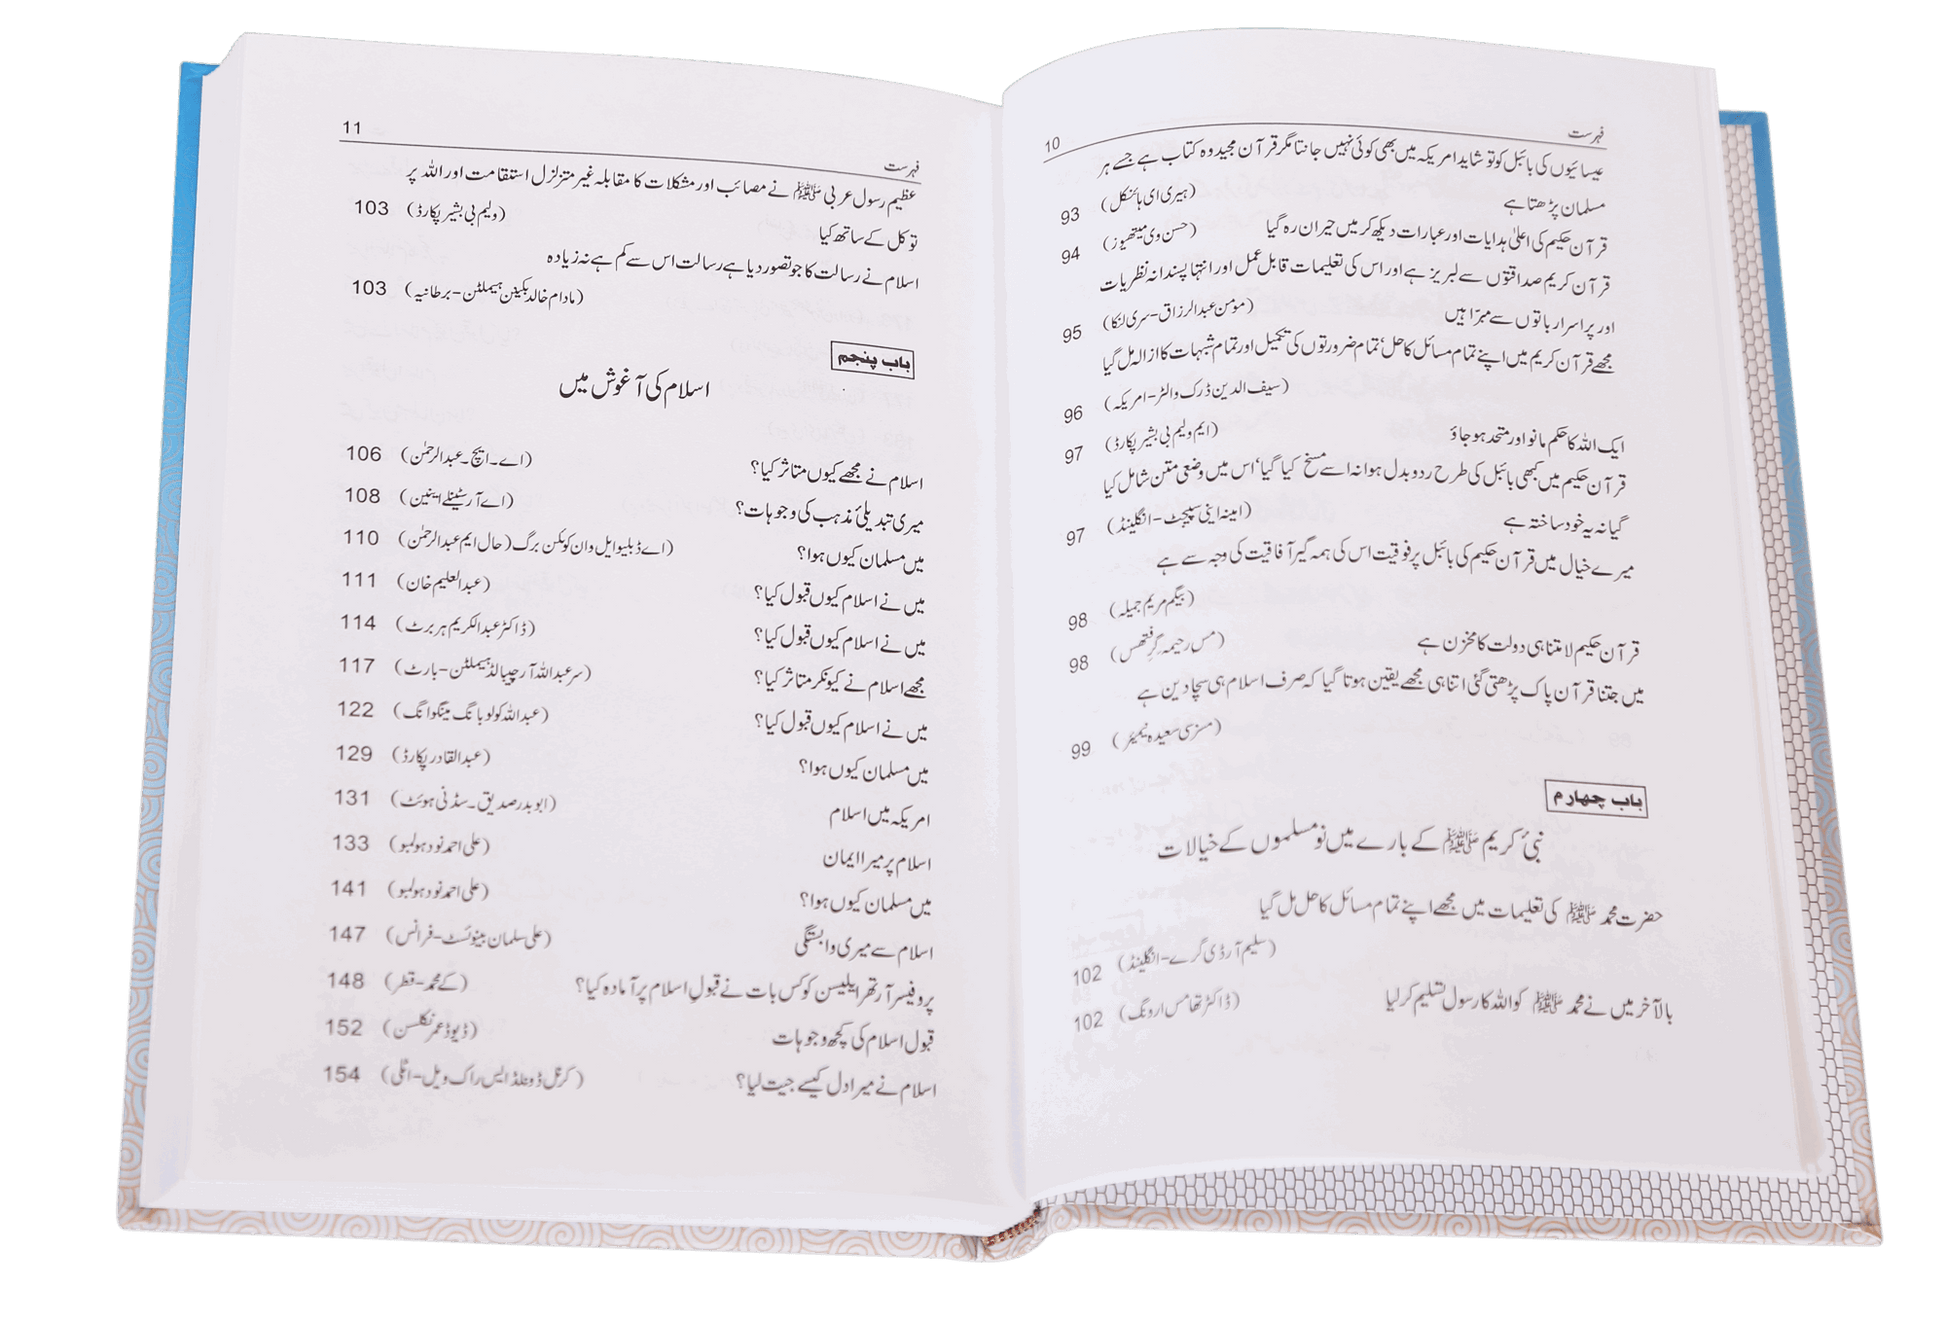 فہرست 10
عیسائیوں کی بائبل کو تو شاید امریکہ میں بھی کوئی نہیں جانتا مگر قرآن مجید وہ کتاب ہے جسے ہر
مسلمان پڑھتا ہے (ہیری ای ہائنکل) 93
قرآن حکیم کی اعلیٰ ہدایات اور عبارات دیکھ کر میں حیران رہ گیا (حسن وی میتھیوز) 94
قرآن کریم صداقتوں سے لبریز ہے اور اس کی تعلیمات قابل عمل اور انتہا پسندانہ نظریات
اور پر اسرار باتوں سے مبرّا ہیں (مومن عبدالرزاق-سری لنکا) 95
مجھے قرآن کریم میں اپنے تمام مسائل کا حل‘ تمام ضرورتوں کی تکمیل اور تمام شبہات کا ازالہ مل گیا
(سیف الدین ڈرک والٹر-امریکہ) 96
ایک اللہ کا حکم مانو اور متحد ہو جاؤ (ایم ولیم بی بشیر پکارڈ) 97
قرآن حکیم میں کبھی بائبل کی طرح ردوبدل ہوا نہ اسے مسخ کیا گیا‘ اس میں وضعی متن شامل کیا
گیا نہ یہ خود ساختہ ہے (امینہ اینی سپیجٹ-انگلینڈ) 97
میرے خیال میں قرآن حکیم کی بائبل پر فوقیت اس کی ہمہ گیر آفاقیت کی وجہ سے ہے
(بیگم مریم جمیلہ) 98
قرآن حکیم لامتناہی دولت کا مخزن ہے (مس رحیمہ گرفتھس) 98
میں جتنا قرآن پاک پڑھتی گئی اتنا ہی مجھے یقین ہوتا گیا کہ صرف اسلام ہی سچا دین ہے
(مسزسی سعیدہ نیمیئر) 99
باب چہارم
نبیٔ کریم ﷺ کے بارے میں نو مسلموں کے خیالات
حضرت محمد ﷺ کی تعلیمات میں مجھے اپنے تمام مسائل کا حل مل گیا
(سلیم آر ڈی گرے-انگلینڈ) 102
بالآخر میں نے محمد ﷺ کو اللہ کا رسول تسلیم کر لیا (ڈاکٹر تھامس ارونگ) 102
فہرست 11
عظیم رسول عربی ﷺ نے مصائب اور مشکلات کا مقابلہ غیر متزلزل استقامت اور اللہ پر
توکل کے ساتھ کیا (ولیم بی بشیر پکارڈ) 103
اسلام نے رسالت کا جو تصور دیا ہے رسالت اس سے کم ہے نہ زیادہ
(مادام خالد بکینن ہیملٹن-برطانیہ) 103
باب پنجم
اسلام کی آغوش میں
اسلام نے مجھے کیوں متاثر کیا؟ (اے۔ایچ۔عبدالرحمٰن) 106
میری تبدیلیٔ مذہب کی وجوہات؟ (اے آر سٹینلے اینین) 108
میں مسلمان کیوں ہوا؟ (اے ڈبلیو ایل وان کوکن برگ (حال ایم عبدالرحمٰن) 110
میں نے اسلام کیوں قبول کیا؟ (عبدالعلیم خان) 111
میں نے اسلام کیوں قبول کیا؟ (ڈاکٹر عبدالکریم ہربرٹ) 114
مجھے اسلام نے کیونکر متاثر کیا؟ (سر عبداللہ آرچیبالڈ ہیملٹن-بارٹ) 117
میں نے اسلام کیوں قبول کیا؟ (عبداللہ کولوبانگ مینگوانگ) 122
میں مسلمان کیوں ہوا؟ (عبدالقادر پکارڈ) 129
امریکہ میں اسلام (ابوبدر صدیق۔سڈنی ہوئٹ) 131
اسلام پر میرا ایمان (علی احمد نود ہولمبو) 133
میں مسلمان کیوں ہوا؟ (علی احمد نود ہولمبو) 141
اسلام سے میری وابستگی (علی سلمان بینوئٹ-فرانس) 147
پروفیسر آرتھر ایلیسن کو کس بات نے قبولِ اسلام پر آمادہ کیا؟ (کے محمد-قطر) 148
قبول اسلام کی کچھ وجوہات (ڈیوڈ عمر نکلسن) 152
اسلام نے میرا دل کیسے جیت لیا؟ (کرنل ڈونلڈ ایس راک ویل-اٹلی) 154